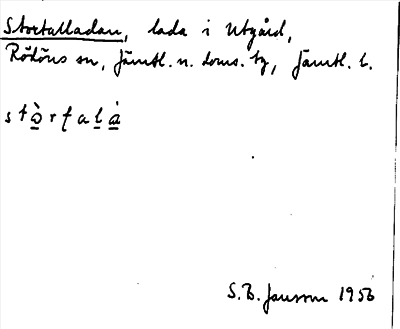 Stortalladan, lada i Utgård,
Rödöns sn, Jämtl. n. doms. tg, Jämtl. l.
stò̱rfaḻȧ̱
S.B. Jansson 1956